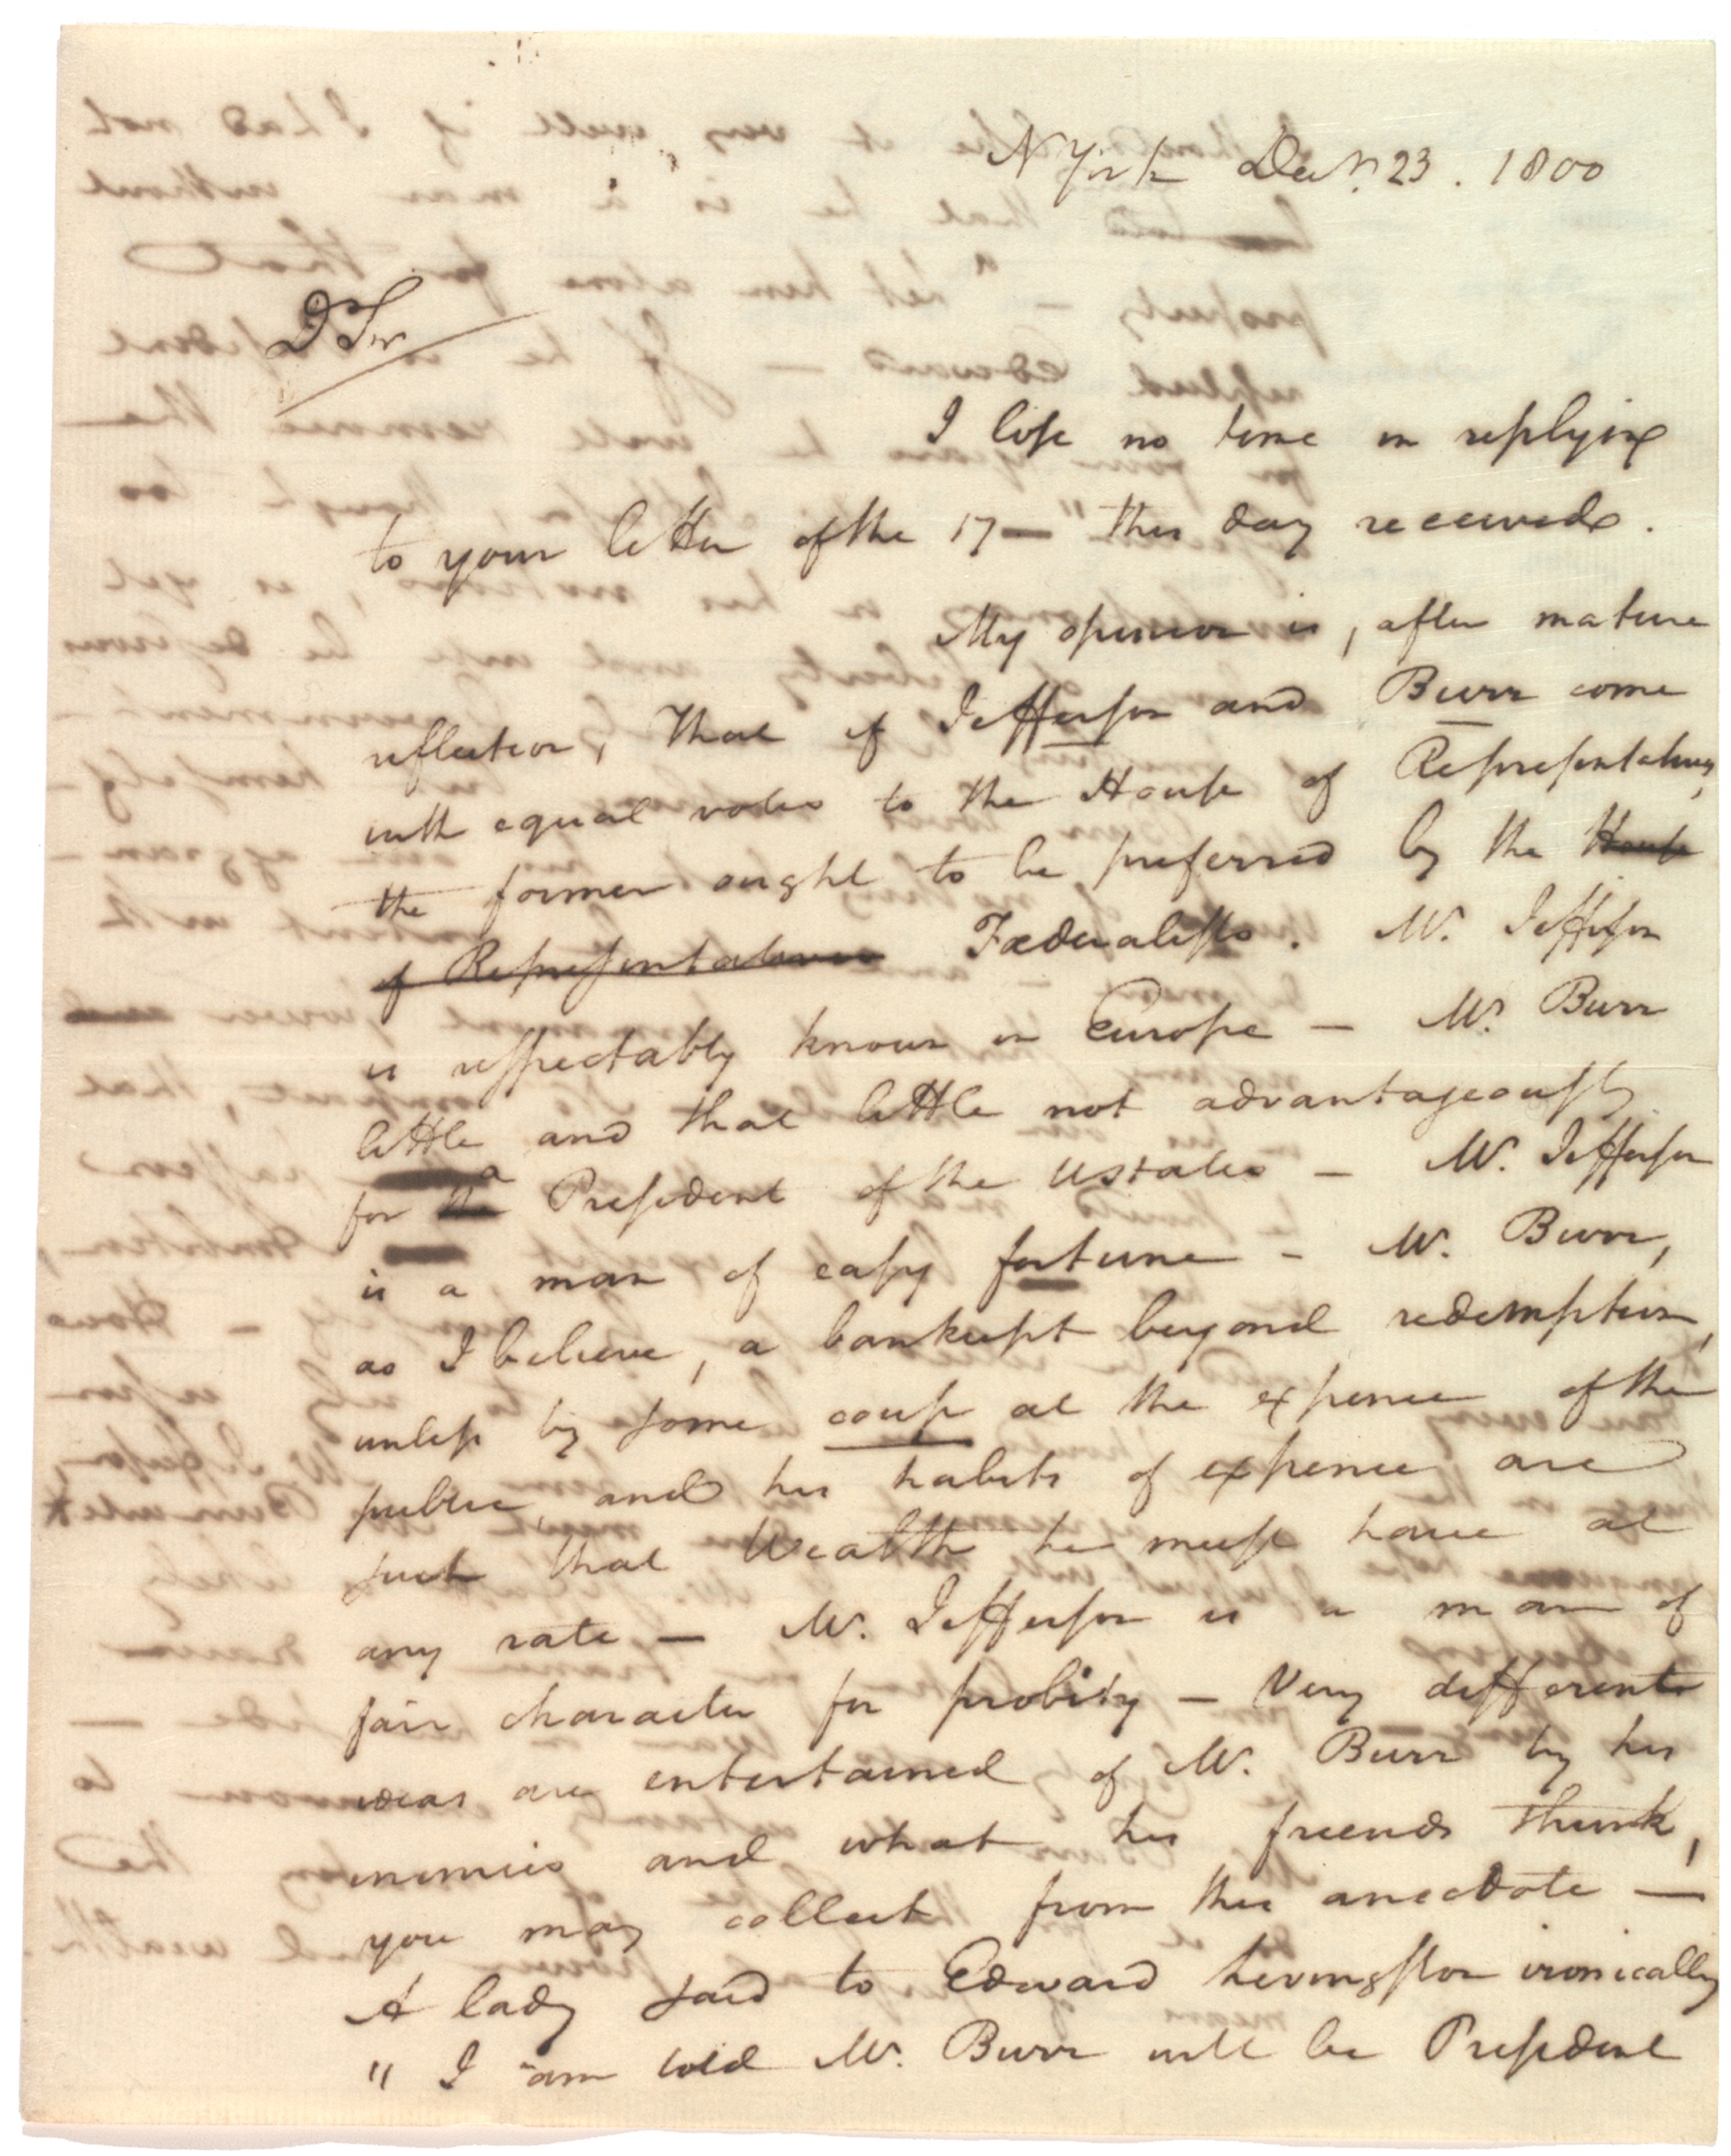 N York Decr. 23. 1800
D Sir
I lose no time in replying
to your letter of the 17— this day received.
My opinion is, after mature
reflection, that if Jefferson and Burr come
with equal votes to the House of Representatives,
the former ought to be preferred by the House
of Representatives Fœderalists. Mr. Jefferson
is respectably known in Europe — Mr. Burr
little and that little not advantageously
for the a President of the UStates — Mr. Jefferson
is a man of easy fortune — Mr. Burr,
as I believe, a bankrupt beyond redemption,
unless by some coup at the expence of the
public, and his habits of expence are
such that Wealth he must have at
any rate — Mr. Jefferson is a man of
fair character for probity — Very different
ideas are entertained of Mr. Burr by his
enemies and what his friends think,
you may collect from this anecdote —
A lady said to Edward Livingston ironically
" I am told Mr. Burr will be President